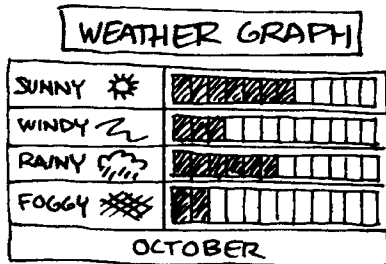 WEATHER GRAPH
SUNNY
WINDY
RAINY
FOGGY
OCTOBER